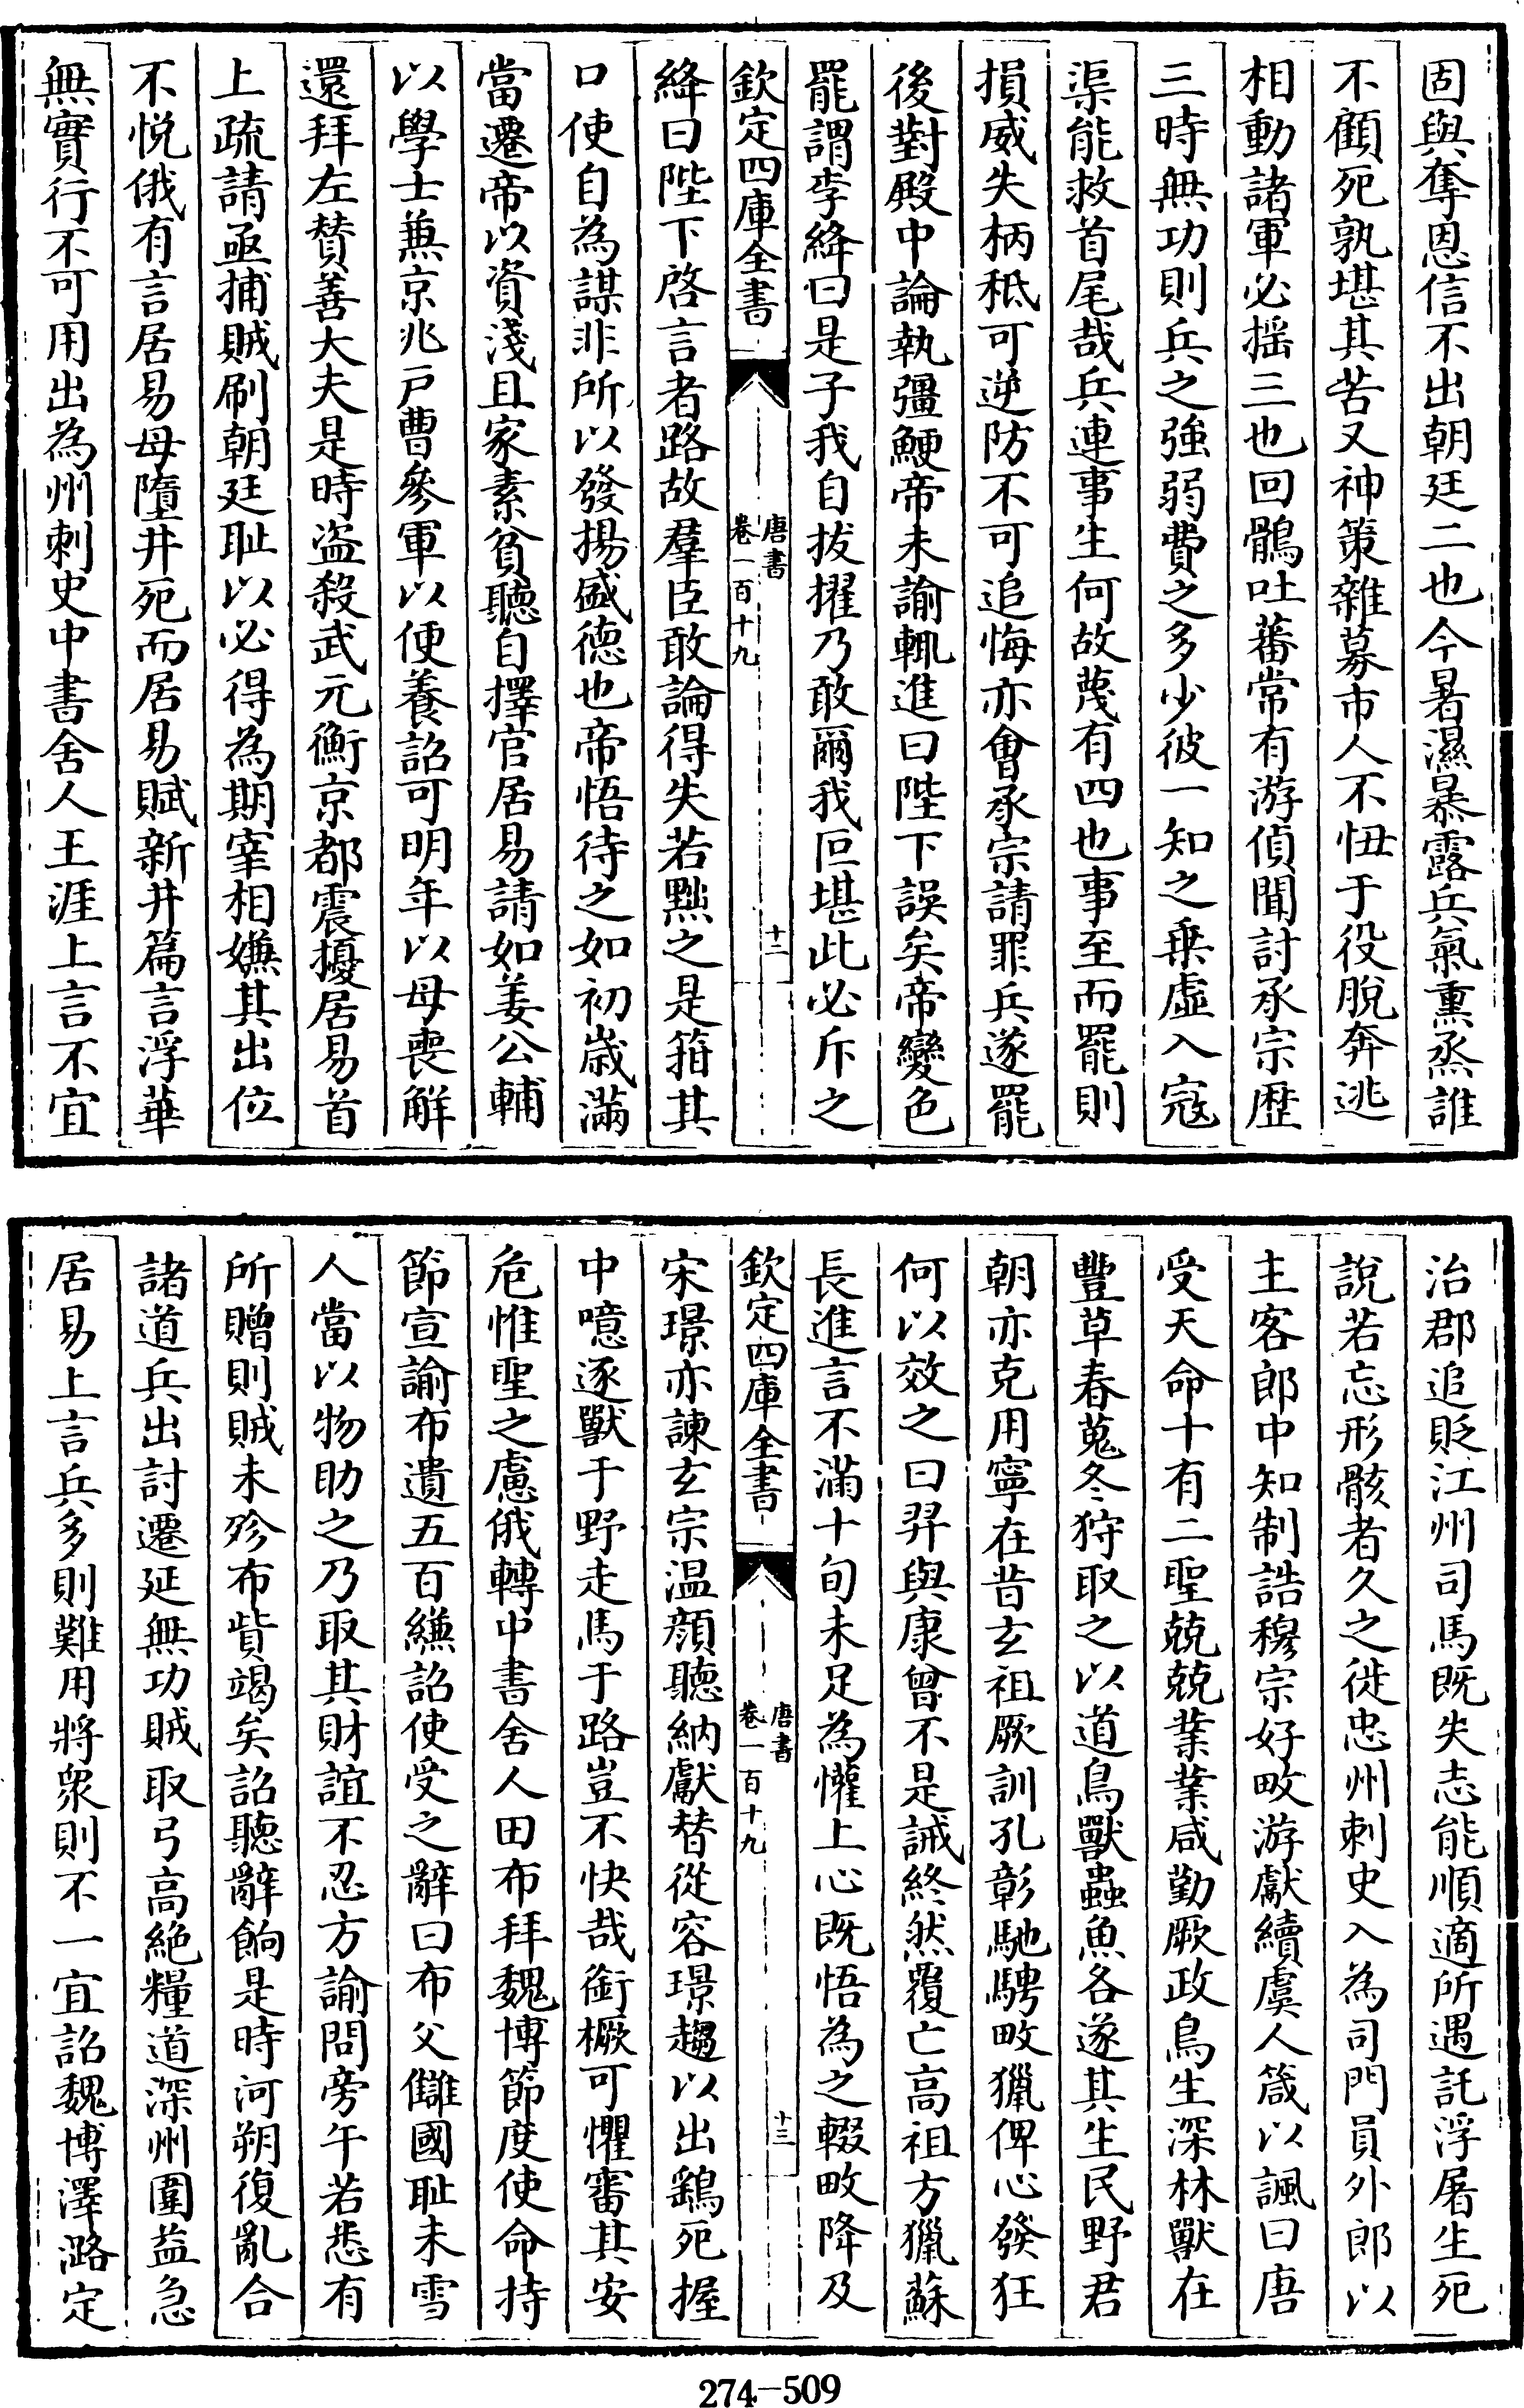 固與奪恩信不出朝廷二也今暑濕暴露兵氣熏烝誰
不顧死孰堪其苦又神策雜募市人不忸于役脫奔逃
相動諸軍必揺三也回鶻吐蕃常有游偵聞討承宗歴
三時無功則兵之強弱費之多少彼一知之乗虛入寇
渠能救首尾哉兵連事生何故蔑有四也事至而罷則
損威失柄秪可逆防不可追悔亦會承宗請罪兵遂罷
後對殿中論執彊鯁帝未諭輒進曰陛下誤矣帝變色
罷謂李絳曰是子我自拔擢乃敢爾我叵堪此必斥之
欽定四庫全書
唐書
卷一百十九
十二
絳曰陛下啓言者路故羣臣敢論得失若黜之是箝其
口使自為謀非所以發揚盛德也帝悟待之如初嵗滿
當遷帝以資淺且家素貧聽自擇官居易請如姜公輔
以學士兼京兆戸曹參軍以便養詔可明年以母喪解
還拜左賛善大夫是時盗殺武元衡京都震擾居易首
上疏請亟捕賊刷朝廷耻以必得為期宰相嫌其出位
不悅俄有言居易母墮井死而居易賦新井篇言浮華
無實行不可用出為州刺史中書舍人王涯上言不宜
治郡追貶江州司馬既失志能順適所遇託浮屠生死
說若忘形骸者久之徙忠州刺史入為司門員外郎以
主客郎中知制誥穆宗好畋游獻續虞人箴以諷曰唐
受天命十有二聖兢兢業業咸勤厥政鳥生深林獸在
豐草春蒐冬狩取之以道鳥獸蟲魚各遂其生民野君
朝亦克用寧在昔玄祖厥訓孔彰馳騁畋獵俾心發狂
何以效之曰羿與康曾不是誡終然覆亡高祖方獵蘇
長進言不滿十旬未足為懽上心既悟為之輟畋降及
欽定四庫全書
唐書
卷一百十九
十三
宋璟亦諫玄宗温顔聽納獻替從容璟趨以出鷂死握
中噫逐獸于野走馬于路豈不快哉銜橛可懼審其安
危惟聖之慮俄轉中書舍人田布拜魏博節度使命持
節宣諭布遺五百縑詔使受之辭曰布父讎國恥未雪
人當以物助之乃取其財誼不忍方諭問旁午若悉有
所贈則賊未殄布貲竭矣詔聽辭餉是時河朔復亂合
諸道兵出討遷延無功賊取弓高絶糧道深州圍益急
居易上言兵多則難用將衆則不一宜詔魏博澤潞定
274-509